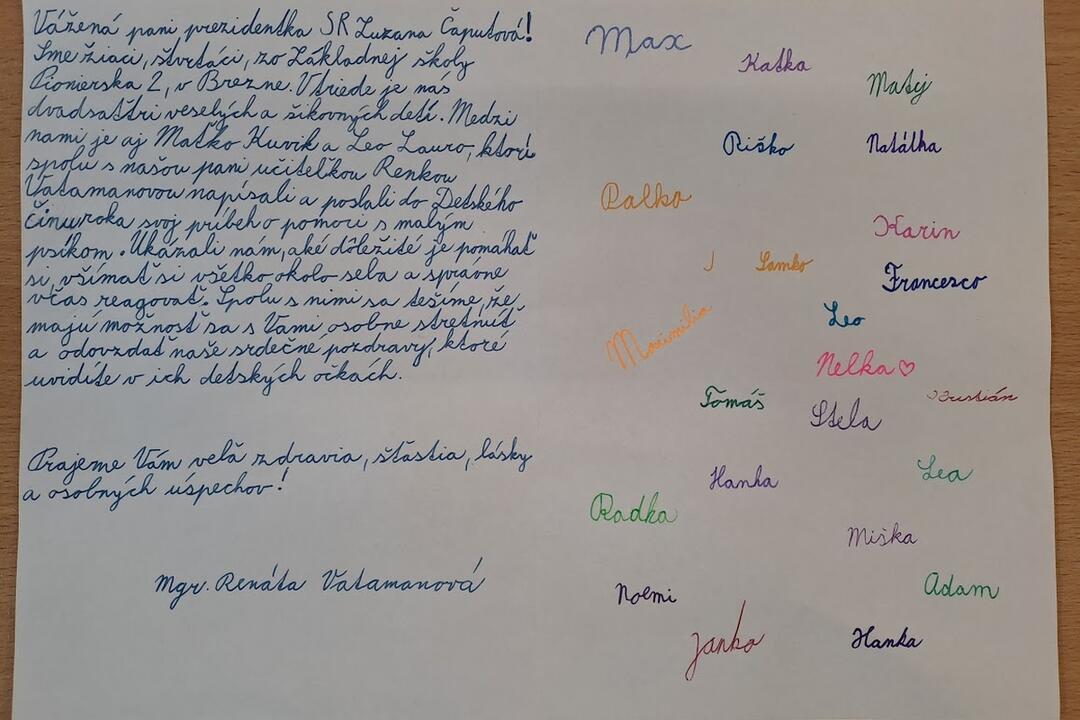 Vážená pani prezidentka SR Zuzana Čaputová!
Sme žiaci, štvrtáci, zo Základnej školy
Pionierska 2, v Brezne. V triede je nás
dvadsaťtri veselých a šikovných detí. Medzi
nami je aj Maťko Kuvik a Leo Lauro, ktorí
spolu s našou pani učiteľkou Renkou
Vatamanovou napísali a poslali do Detského
činu roka svoj príbeh o pomoci s malým
psíkom. Ukázali nám, aké dôležité je pomáhať
si, všímať si všetko okolo seba a správne
včas reagovať. Spolu s nimi sa tešíme, že
majú možnosť sa s Vami osobne stretnúť
a odovzdať naše srdečné pozdravy, ktoré
uvidíte v ich detských očkách.
Prajeme Vám veľa zdravia, šťastia, lásky
a osobných úspechov!
Mgr. Renáta Vatamanová
Max
Katka
Matý
Riško
Natálka
Palko
Karin
Samko
Francesco
Leo
Maximilia
Nelka
Tomáš
Kristián
Stela
Hanka
Lea
Radka
Miška
Noemi
Adam
Janko
Hanka